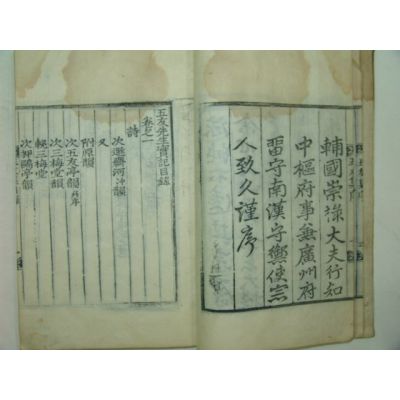 輔國崇祿大夫行知
中樞府事兼廣州府
留守南漢守禦使宗
人致久謹序
五友先生實記目錄
卷之一
詩
次進齋河沖韻
又
附原韻
次五友亭韻
次三梅堂韻
輓三梅堂
次狎鷗亭韻